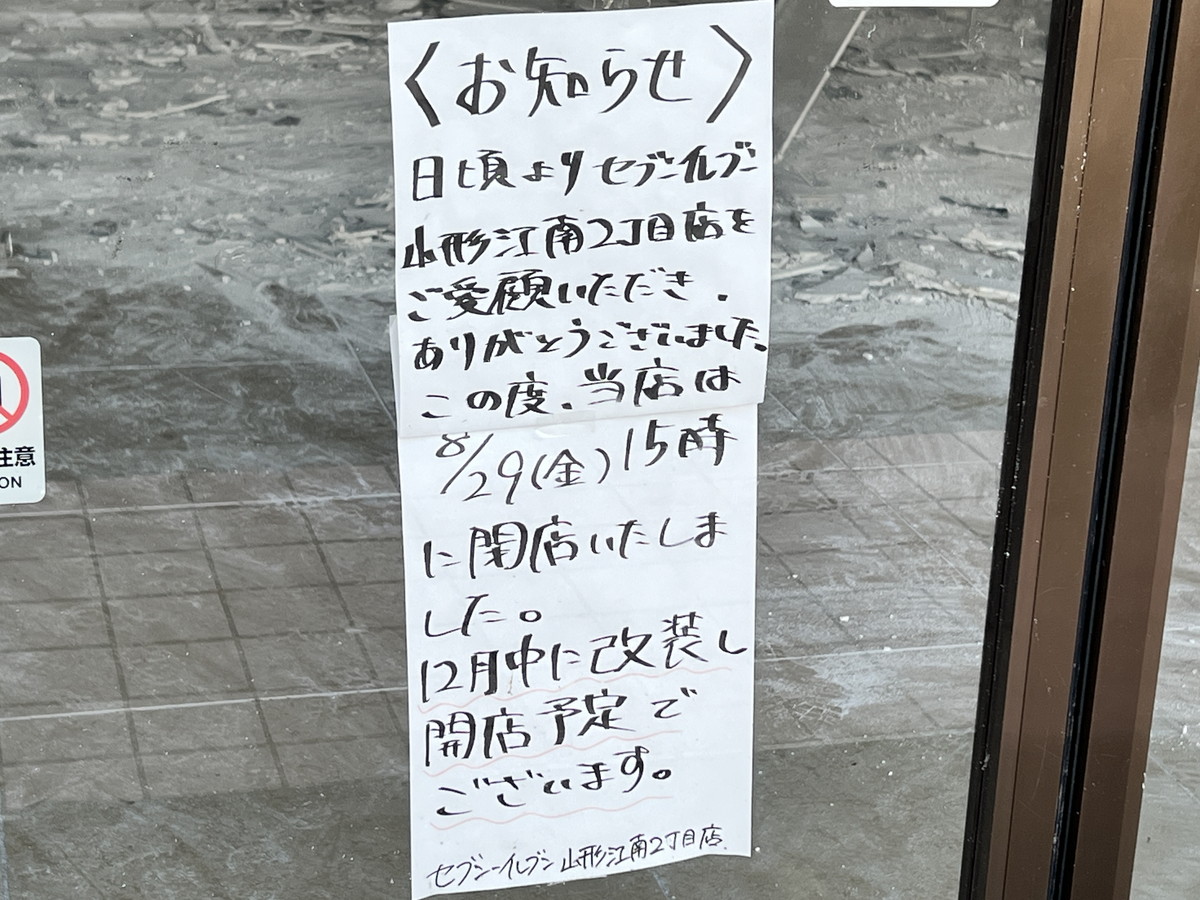 〈お知らせ〉
日頃よりセブンイレブン
山形江南2丁目店を
ご愛顧いただき、
ありがとうございました。
この度、当店は
8/29(金)15時
に閉店いたしま
した。
12月中に改装し
開店予定で
ございます。
セブンーイレブン 山形江南2丁目店
注意
ON